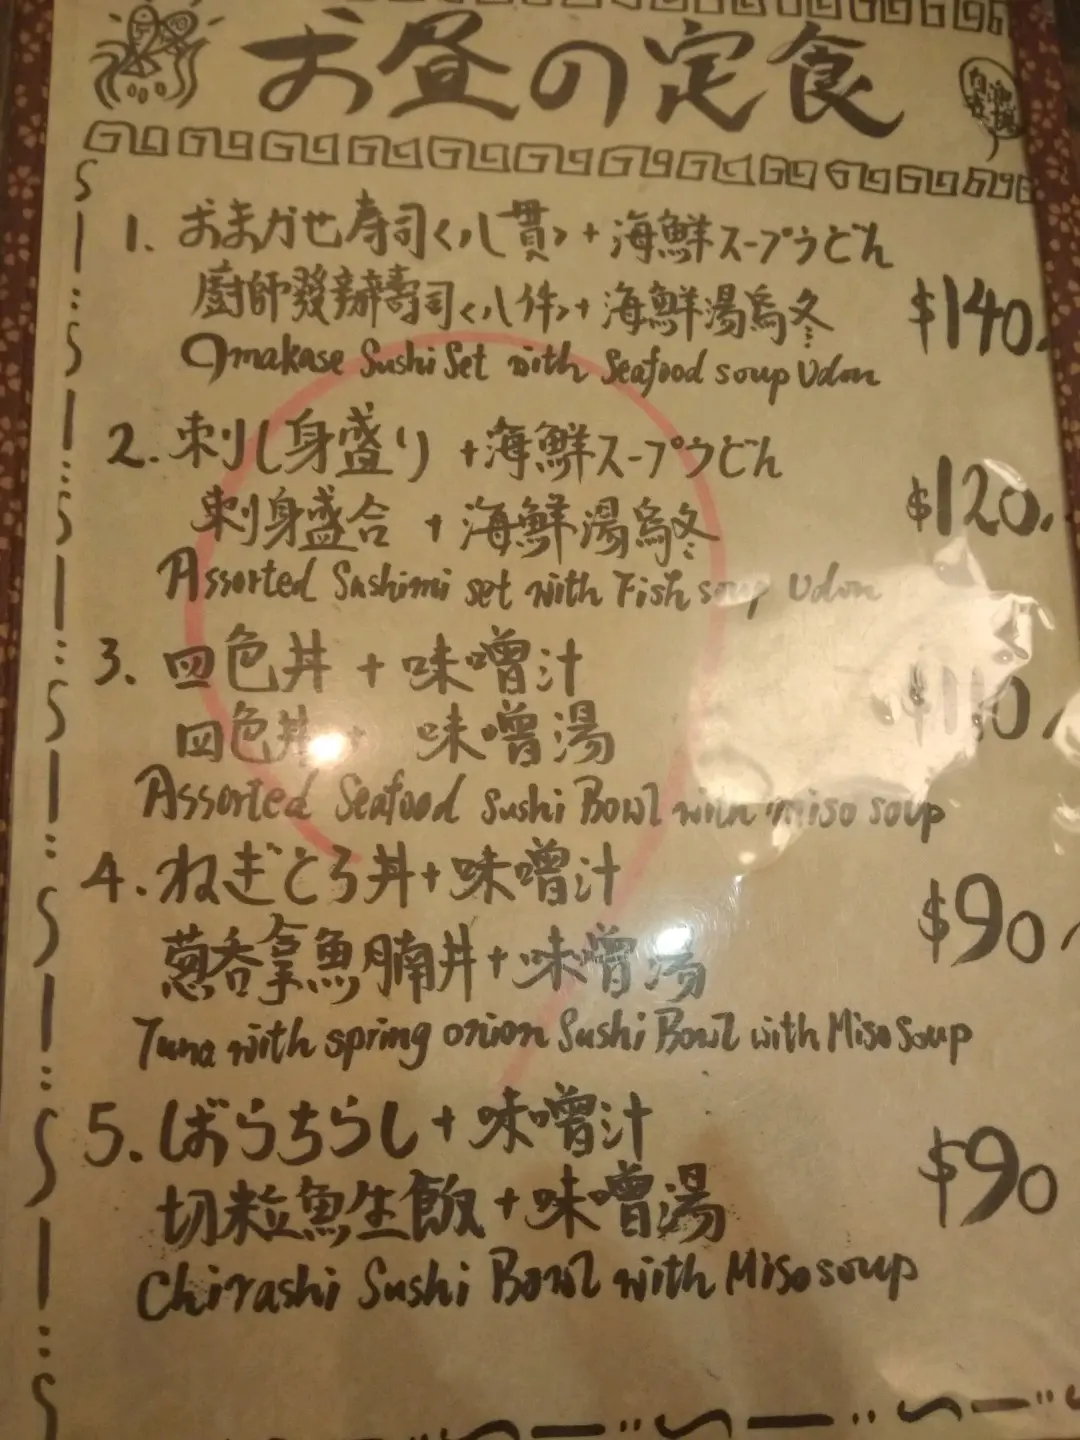 お昼の定食
1. おまかせ寿司<八貫>+海鮮スープうどん
廚師發辦壽司<八件>+海鮮湯烏冬
$140.
Omakase Sushi Set with Seafood soup Udon
2. 刺し身盛り+海鮮スープうどん
刺身盛合+海鮮湯烏冬
$120.
Assorted Sashimi set with Fish soup Udon
3. 四色丼+味噌汁
四色丼+味噌湯
$110
Assorted Seafood Sushi Bowl with miso soup
4. ねぎとろ丼+味噌汁
葱吞拿魚腩丼+味噌湯
$90
Tuna with spring onion Sushi Bowl with Miso Soup
5. ばらちらし+味噌汁
切粒魚生飯+味噌湯
$90
Chirashi Sushi Bowl with Miso soup